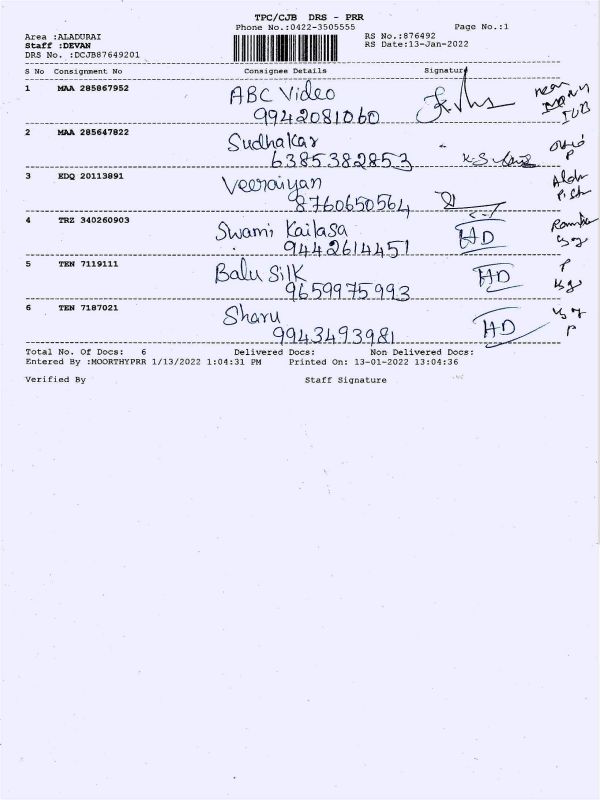 TPC/CJB DRS - PRR
Phone No.:0422-3505555 Page No.:1
Area :ALADURAI RS No.:876492
Staff :DEVAN RS Date:13-Jan-2022
DRS No. :DCJB87649201
S No Consignment No Consignee Details Signature
1 MAA 285867952 ABC Video near
9942081060
2 MAA 285647822 Sudhakar
6385382853 P
3 EDQ 20113891 Veeraiyan
8760650564
4 TRZ 340260903 Swami Kailasa HD
9442614451
5 TEN 7119111 Balu Silk HD P
9659975993
6 TEN 7187021 Sharu HD
9943493981 P
Total No. Of Docs: 6 Delivered Docs: Non Delivered Docs:
Entered By :MOORTHYPRR 1/13/2022 1:04:31 PM Printed On: 13-01-2022 13:04:36
Verified By Staff Signature